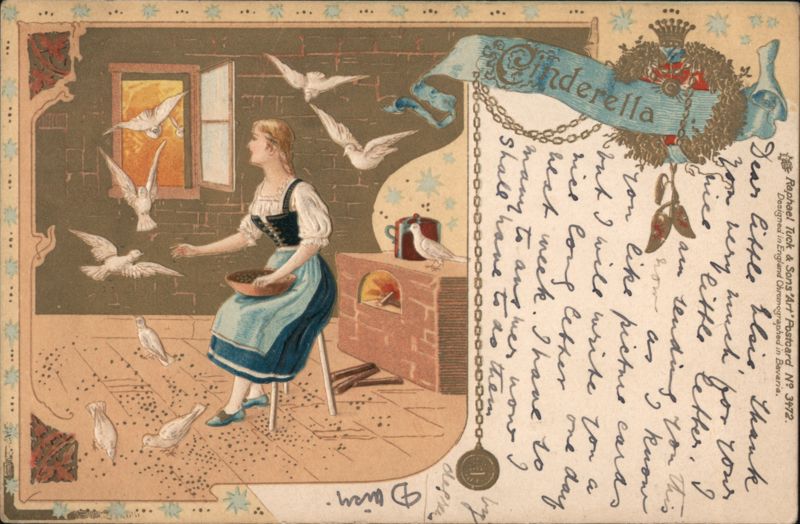 Cinderella
Raphael Tuck & Sons' "Art" Postcard Nº 3472.
Designed in England Chromographed in Bavaria.
Dear little Elsie Thank
You very much for your
nice little letter. I
am sending you this
now as I know
You like picture cards
but I will write you a
nice long letter one day
next week. I have so
many to answer now I
Shall have to do them
by